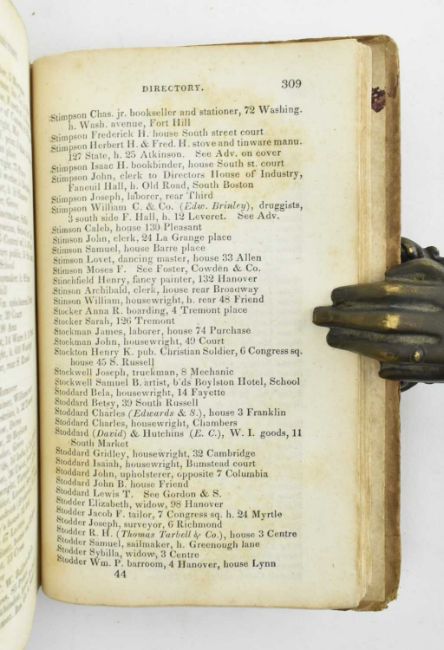 DIRECTORY. 309
Stimpson Chas. jr. bookseller and stationer, 72 Washing.
h. Wash. avenue, Fort Hill
Stimpson Frederick H. house South street court
Stimpson Herbert H. & Fred. H. stove and tinware manu.
127 State, h. 25 Atkinson. See Adv. on cover
Stimpson Isaac H. bookbinder, house South st. court
Stimpson John, clerk to Directors House of Industry,
Faneuil Hall, h. Old Road, South Boston
Stimpson Joseph, laborer, rear Third
Stimpson William C. & Co. (Edw. Brinley), druggists,
3 south side F. Hall, h. 12 Leveret. See Adv.
Stimson Caleb, house 139 Pleasant
Stimson John, clerk, 24 La Grange place
Stimson Samuel, house Barre place
Stimson Lovet, dancing master, house 33 Allen
Stimson Moses F. See Foster, Cowden & Co.
Stinchfield Henry, fancy painter, 132 Hanover
Stinson Archibald, clerk, house rear Broadway
Stinson William, housewright, h. rear 48 Friend
Stocker Anna R. boarding, 4 Tremont place
Stocker Sarah, 126 Tremont
Stockman James, laborer, house 74 Purchase
Stockman John, housewright, 49 Court
Stockton Henry K. pub. Christian Soldier, 6 Congress sq.
house 45 S. Russell
Stockwell Joseph, truckman, 8 Mechanic
Stockwell Samuel B. artist, b'ds Boylston Hotel, School
Stoddard Bela, housewright, 14 Fayette
Stoddard Betsy, 39 South Russell
Stoddard Charles (Edwards & S.), house 3 Franklin
Stoddard Charles, housewright, Chambers
Stoddard (David) & Hutchins (E. C.), W. I. goods, 11
South Market
Stoddard Gridley, housewright, 32 Cambridge
Stoddard Isaiah, housewright, Bumstead court
Stoddard John, upholsterer, opposite 7 Columbia
Stoddard John B. house Friend
Stoddard Lewis T. See Gordon & S.
Stodder Elizabeth, widow, 98 Hanover
Stodder Jacob F. tailor, 7 Congress sq. h. 24 Myrtle
Stodder Joseph, surveyor, 6 Richmond
Stodder R. H. (Thomas Tarbell & Co.), house 3 Centre
Stodder Samuel, sailmaker, h. Greenough lane
Stodder Sybilla, widow, 3 Centre
Stodder Wm. P. barroom, 4 Hanover, house Lynn
44